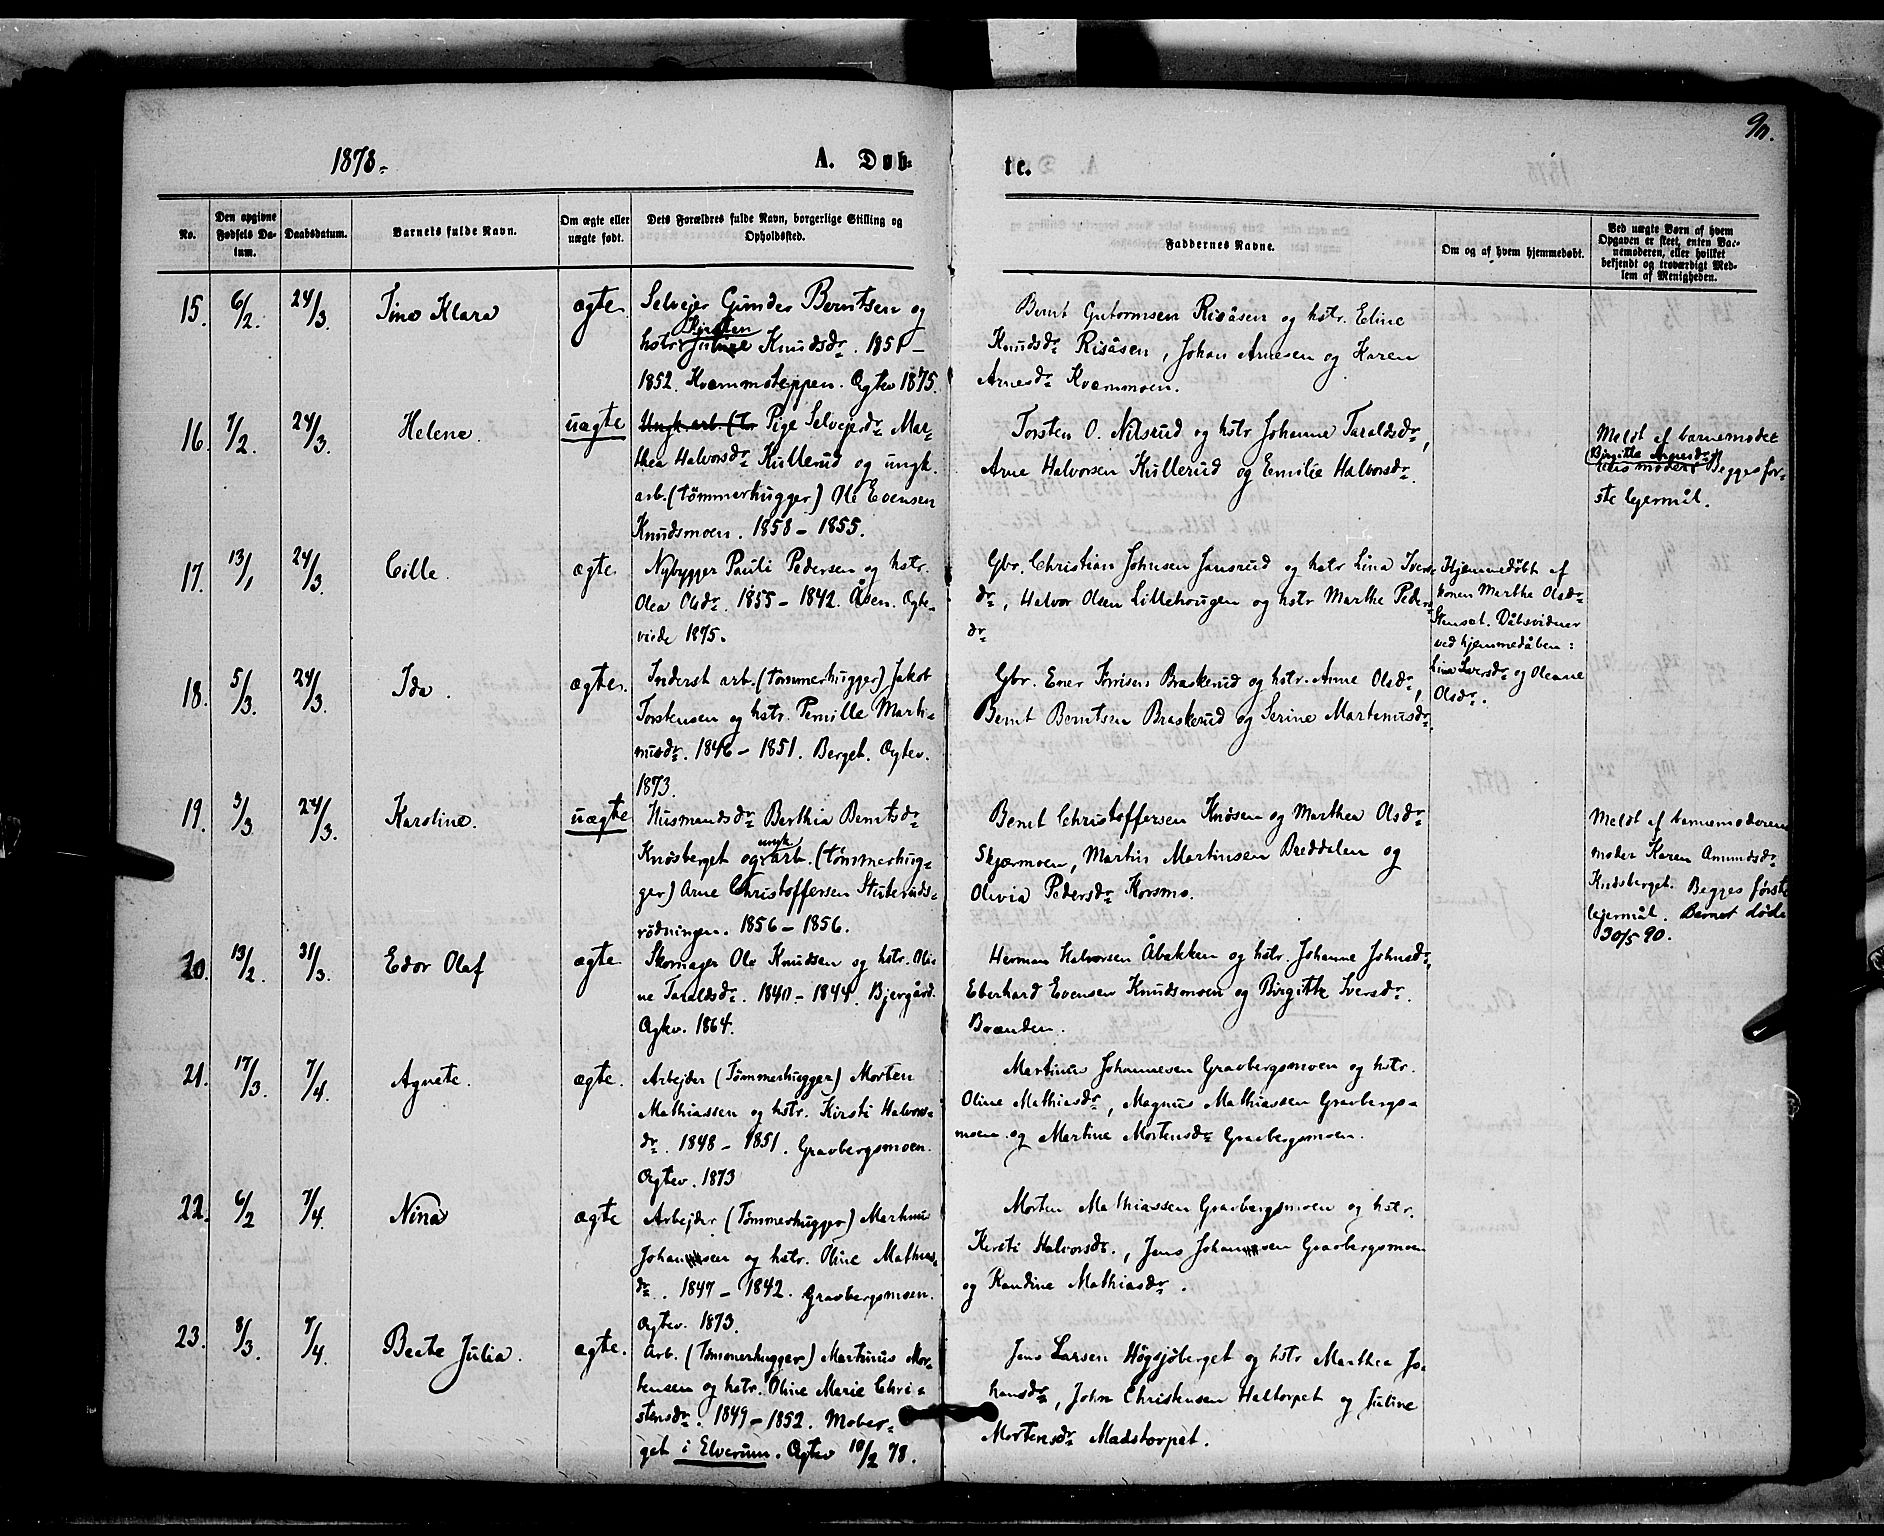 1878.
A. Døb-
te.
90.
No.
Den opgivne Fødsels Da-
tum.
Daabsdatum.
Barnets fulde Navn.
Om ægte eller
uægte født.
Dets Forældres fulde Navn, borgerlige Stilling og
Opholdssted.
Faddernes Navne.
Om og af hvem hjemmedøbt.
Ved uægte Børn af hvem
Opgaven er skeet, enten Bar-
nemoderen, eller hvilket
bekjendt og troværdigt Med-
lem af Menigheden.
15. 6/2. 24/3. Tina Klara ægte
Selvejer Gunder Berntsen og
Kirsten
hstr. Juline Knudsdr. 1851 –
1852. Kvæmmoteppen. Ægtev 1875.
Bernt Gutormsen Risåsen og hstr. Eline
Knudsdr. Risåsen, Johan Arnesen og Karen
Arnesdr. Kvæmmoen.
16. 7/2. 24/3. Helene. uægte
Ungk. arb. (T. Pige Selvejerdr. Mar-
thea Halvorsdr. Kullerud og ungk.
arb. (tømmerhugger) Ole Evensen
Knudsmoen. 1858 – 1855.
Torsten O. Nilsrud og hstr Johanne Taraldsdr.,
Arne Halvorsen Kullerud og Emilie Halvorsdr.
Meldt af barnemoder
Birgitte Arnesdr.
ens moder. Begges før-
ste lejermål.
17. 13/1 24/3. Cille. ægte
Nybygger Pauli Pedersen og hstr.
Olea Olsdr. 1855 – 1842. Åsen. Ægte-
viede 1875.
Gbr. Christian Johnsen Jansrud og hstr Lina Ivers-
dr., Halvor Olsen Lillehougen og hstr Marthe Peders-
dr.
Hjemmedøbt af
konen Marthe Olsdr.
Stenset. Dåbsvidner
ved hjemmedåben:
Lina Iversdr. og Oleane
Olsdr.
18. 5/3. 24/3. Ida. ægte.
Inderst arb. (tømmerhugger) Jakob
Torstensen og hstr. Pernille Marti-
nusdr. 1846 – 1851. Berget. Ægtev.
1873.
Gbr. Ener Torrisen Braskerud og hstr. Anne Olsdr.,
Bernt Berntsen Braskerud og Serine Martinusdr.
19. 3/3 24/3. Karoline. uægte
Husmandsdr. Berthia Berntsdr.
ungk
Knøsberget og arb. (tømmerhug-
ger) Arne Christoffersen Stuteruds-
rødningen. 1856 – 1856.
Bernt Christoffersen Knøsen og Marthea Olsdr.
Skjærmoen, Martin Martinsen Breddalen og
Olivia Pedersdr. Korsmo.
Meldt af barnemoderens
moder Karen Amundsdr.
Knøsberget. Begges første
lejermål. Barnet døde
30/5 90.
20. 13/2 31/3. Edor Olaf ægte
Skomager Ole Knudsen og hstr. Oli-
ne Taraldsdr. 1840 – 1844. Bjergård.
Ægtev. 1864.
Herman Halvorsen Åbakken og hstr. Johanne Johnsdr.,
Eberhard Evensen Knudsmoen og Birgitte Iversdr.
Brænden.
21. 17/3. 7/4. Agnete. ægte.
Arbejder (Tømmerhugger) Morten
Mathiassen og hstr. Kirsti Halvors-
dr. 1848 – 1851. Gravbergsmoen.
Ægtev. 1873
Martinus Johannesen Gravbergsmoen og hstr.
Oline Mathiasdr., Magnus Mathiassen Gravbergs-
moen og Martine Mortensdr. Gravbergsmoen.
22. 6/2 7/4. Nina ægte
Arbejder (Tømmerhugger) Martinus
Johansen og hstr. Oline Mathias-
dr. 1847 – 1842. Gravbergsmoen.
Ægtev. 1873.
Morten Mathiassen Gravbergsmoen og hstr.
Kirsti Halvorsdr., Jens Johansen Gravbergsmoen
og Randine Mathiasdr.
23. 8/3. 7/4. Beate Julia. ægte.
Arb. (Tømmerhugger) Martinus Mor-
tensen og hstr. Oline Marie Chri-
stensdr. 1849 – 1852. Mober-
get i Elverum. Ægtev 10/2 78.
Jens Larsen Høgsjøberget og hstr Marthea Jo-
hansdr., John Christensen Haltorpet og Juline
Mortensdr. Madstorpet.